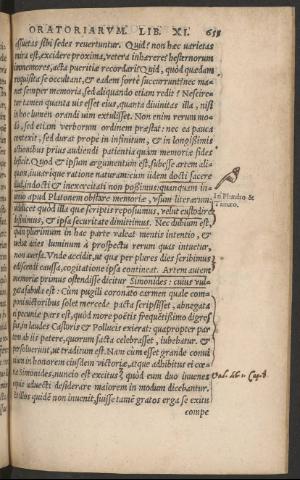 ORATORIARVM LIB. XI. 658
assuetas sibi sedes reuertuntur. Quid? non hæc varietas
mira est, excidere proxima, vetera inhærere? hesternorum
immemores, acta pueritiæ recordari? Quid, quòd quædam
requisita se occultant, & eadem fortè succurrunt? nec ma-
net semper memoria, sed aliquando etiam redit? Nescire-
tur tamen quanta vis esset eius, quanta diuinitas illa, nisi
in hoc lumen orandi vim extulisset. Non enim rerum mo-
dò, sed etiam verborum ordinem præstat: nec ea pauca
contexit, sed durat propè in infinitum, & in longissimis
actionibus prius audiendi patientia quàm memoriæ fides
deficit. Quod & ipsum argumentum est, subesse artem ali-
quam, iuuarique ratione naturam: cùm idem docti facere
indocti & inexercitati non possimus: quanquam in-
uenio apud Platonem obstare memoriæ, vsum literarum:
videlicet quòd illa quæ scriptis reposuimus, velut custodire
desinimus, & ipsa securitate dimittimus. Nec dubium est,
quin plurimum in hac parte valeat mentis intentio, &
velut acies luminum à prospectu rerum quas intuetur,
non auersa. Vnde accidit, vt quæ per plures dies scribimus
ediscendi caussa, cogitatione ipsa contineat. Artem autem
memoriæ primus ostendisse dicitur Simonides: cuius vul-
gata fabula est: Cùm pugili coronato carmen quale com-
poni victoribus solet mercede pacta scripsisset, abnegatam
ei pecuniæ partem, quòd more poëtis frequentissimo digres-
sus, in laudes Castoris & Pollucis exierat: quapropter par-
tem ab iis petere, quorum facta celebrasset, iubebatur. &
persoluerunt, vt traditum est. Nam cùm esset grande conui-
uium in honorem eiusdem victoriæ, atque adhibitus ei cœ-
næ Simonides, nuncio est excitus, quòd eum duo iuuenes
equis aduecti desiderare maiorem in modum dicebantur.
Et illos quidem non inuenit, fuisse tamen gratos erga se exitu
compe
In Phædro &
Timæo.
Val. lib. 1. Cap. 8